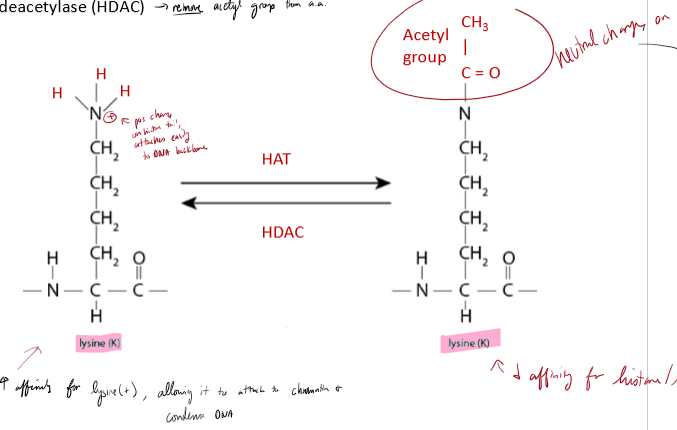 deacetylase (HDAC) → remove acetyl group from a.a.
Acetyl
group
CH3
C = O
neutral charge on
H
H H
N +
pos charge
on histone tail,
attaches easily
to DNA backbone
CH2
CH2
CH2
CH2
H O
— N — C — C —
H
lysine (K)
HAT
HDAC
N
CH2
CH2
CH2
CH2
H O
— N — C — C —
H
lysine (K)
↑ affinity for lysine (+), allowing it to attach to chromatin &
condense DNA
↓ affinity for histone /